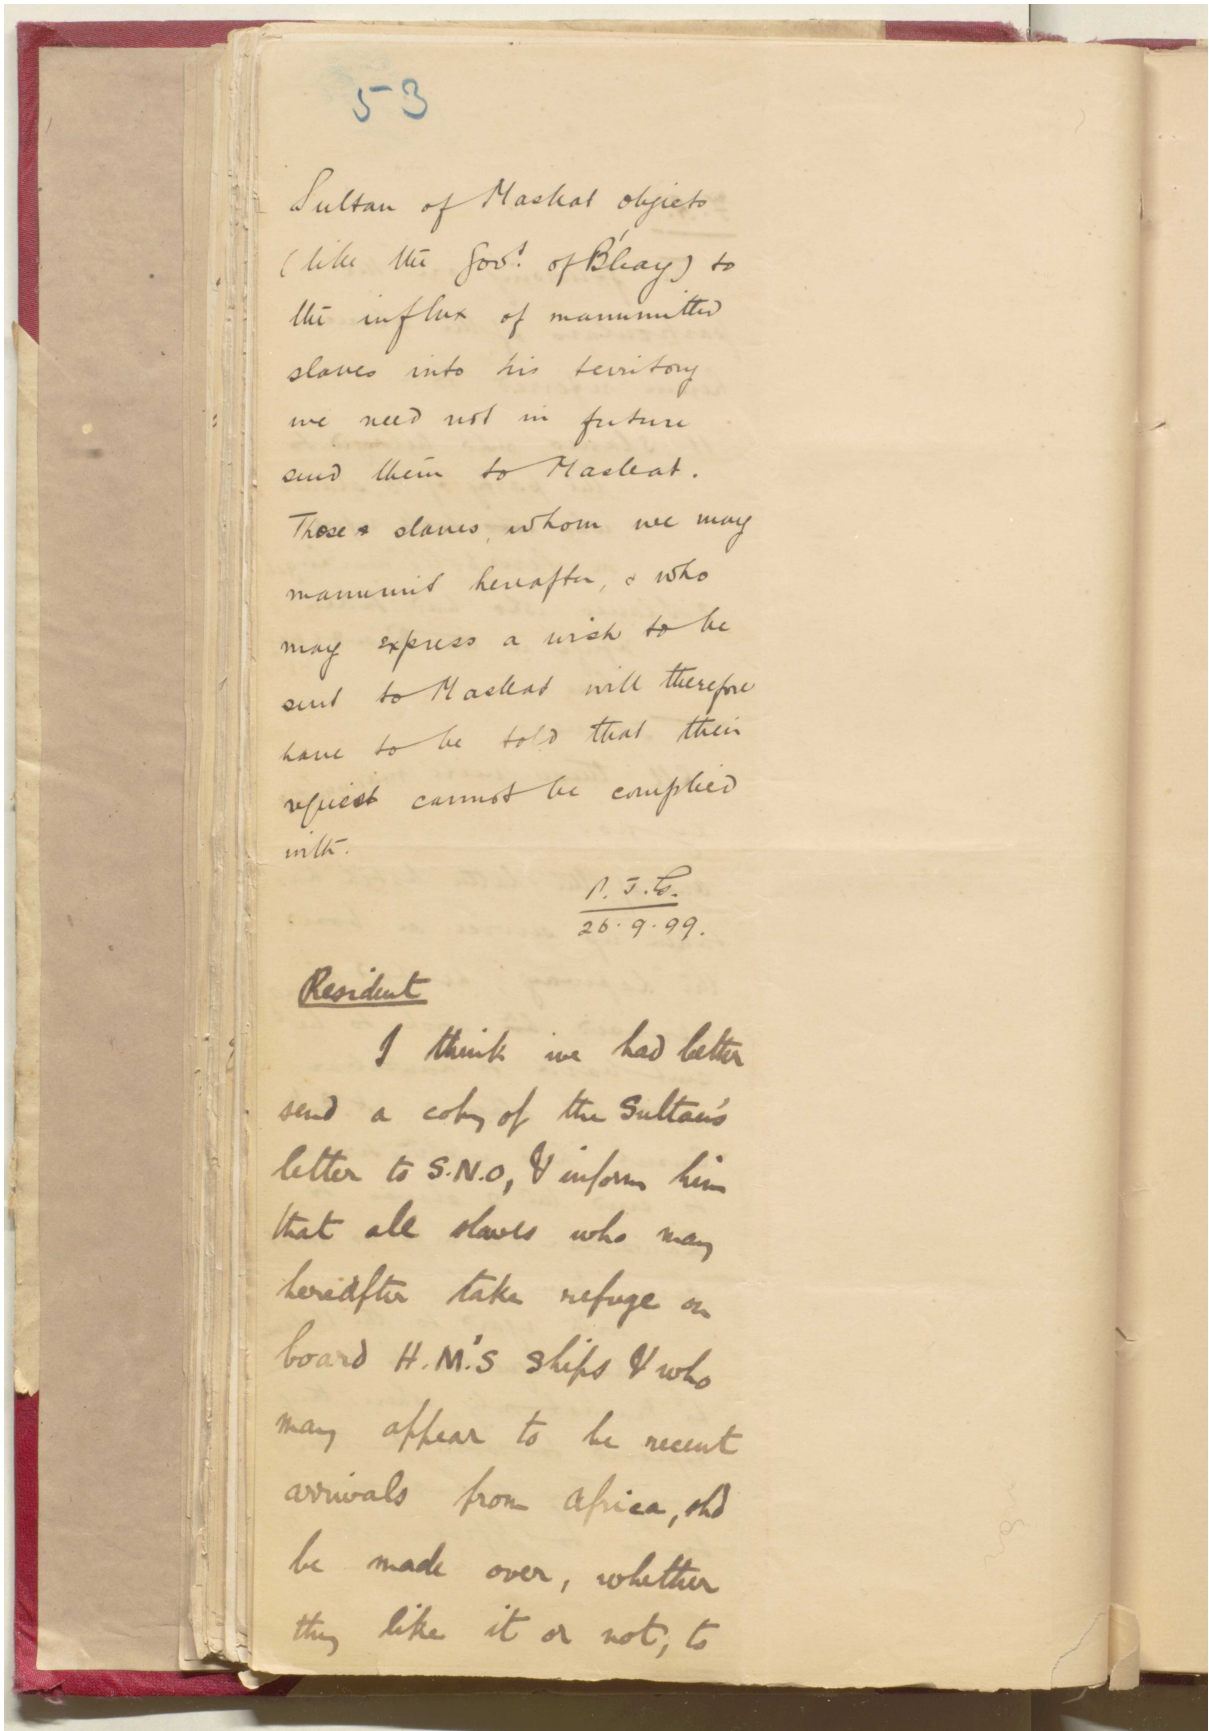 53
Sultan of Maskat objects
(like the Govt. of B'bay) to
the influx of manumitted
slaves into his territory
we need not in future
send them to Maskat.
Those slaves, whom we may
manumit hereafter, & who
may express a wish to be
sent to Maskat will therefore
have to be told that their
request cannot be complied
with.
P. J.
26.9.99.
Resident
I think we had better
send a copy of the Sultan's
letter to S.N.O, & inform him
that all slaves who may
hereafter take refuge on
board H.M.'s ships & who
may appear to be recent
arrivals from Africa, shd
be made over, whether
they like it or not, to